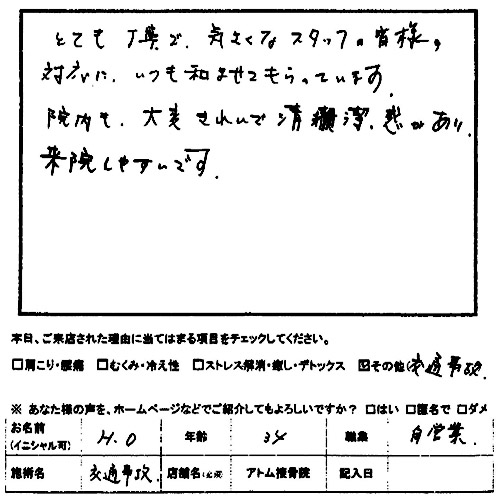 とても丁寧で、気さくなスタッフの皆様の
対応に、いつも和ませてもらっています。
院内も、大変きれいで清潔感があり、
来院しやすいです。
本日、ご来店された理由に当てはまる項目をチェックしてください。
□肩こり・腰痛 □むくみ・冷え性 □ストレス解消・癒し・デトックス ☑その他 交通事故.
※ あなた様の声を、ホームページなどでご紹介してもよろしいですか? □はい □匿名で □ダメ
お名前 (イニシャル可) H.O 年齢 34 職業 自営業.
施術名 交通事故. 店舗名 アトム接骨院 記入日